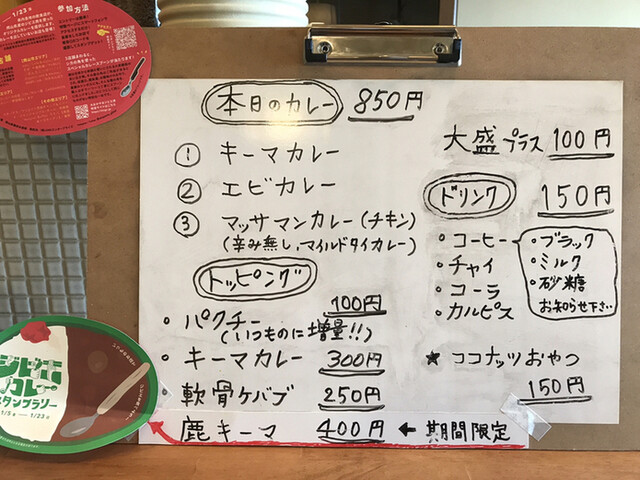 本日のカレー 850円
① キーマカレー
② エビカレー
③ マッサマンカレー(チキン)
(辛み無し、マイルドタイカレー)
トッピング
100円
・パクチー
(いつものに増量!!)
・キーマカレー 300円
・軟骨ケバブ 250円
鹿キーマ 400円 ← 期間限定
大盛プラス 100円
ドリンク 150円
・コーヒー
・チャイ
・コーラ
・カルピス
・ブラック
・ミルク
・砂糖
お知らせ下さい
★ ココナッツおやつ
150円
1/23
参加方法
カレー
スタンプラリー
1/5 — 1/23